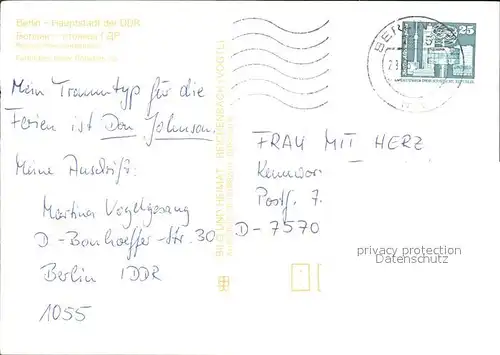 Berlin - Hauptstadt der DDR
Mein Traumtyp für die
Ferien ist Don Johnson.
Meine Anschrift:
Martina Vogelgesang
D-Bonhoeffer-Str. 30
Berlin 1DDR
1055
BILD UND HEIMAT REICHENBACH (VOGTL)
BERLIN
25
FRAU MIT HERZ
Kennwor
Postf. 7.
D-7570
privacy protection
Datenschutz